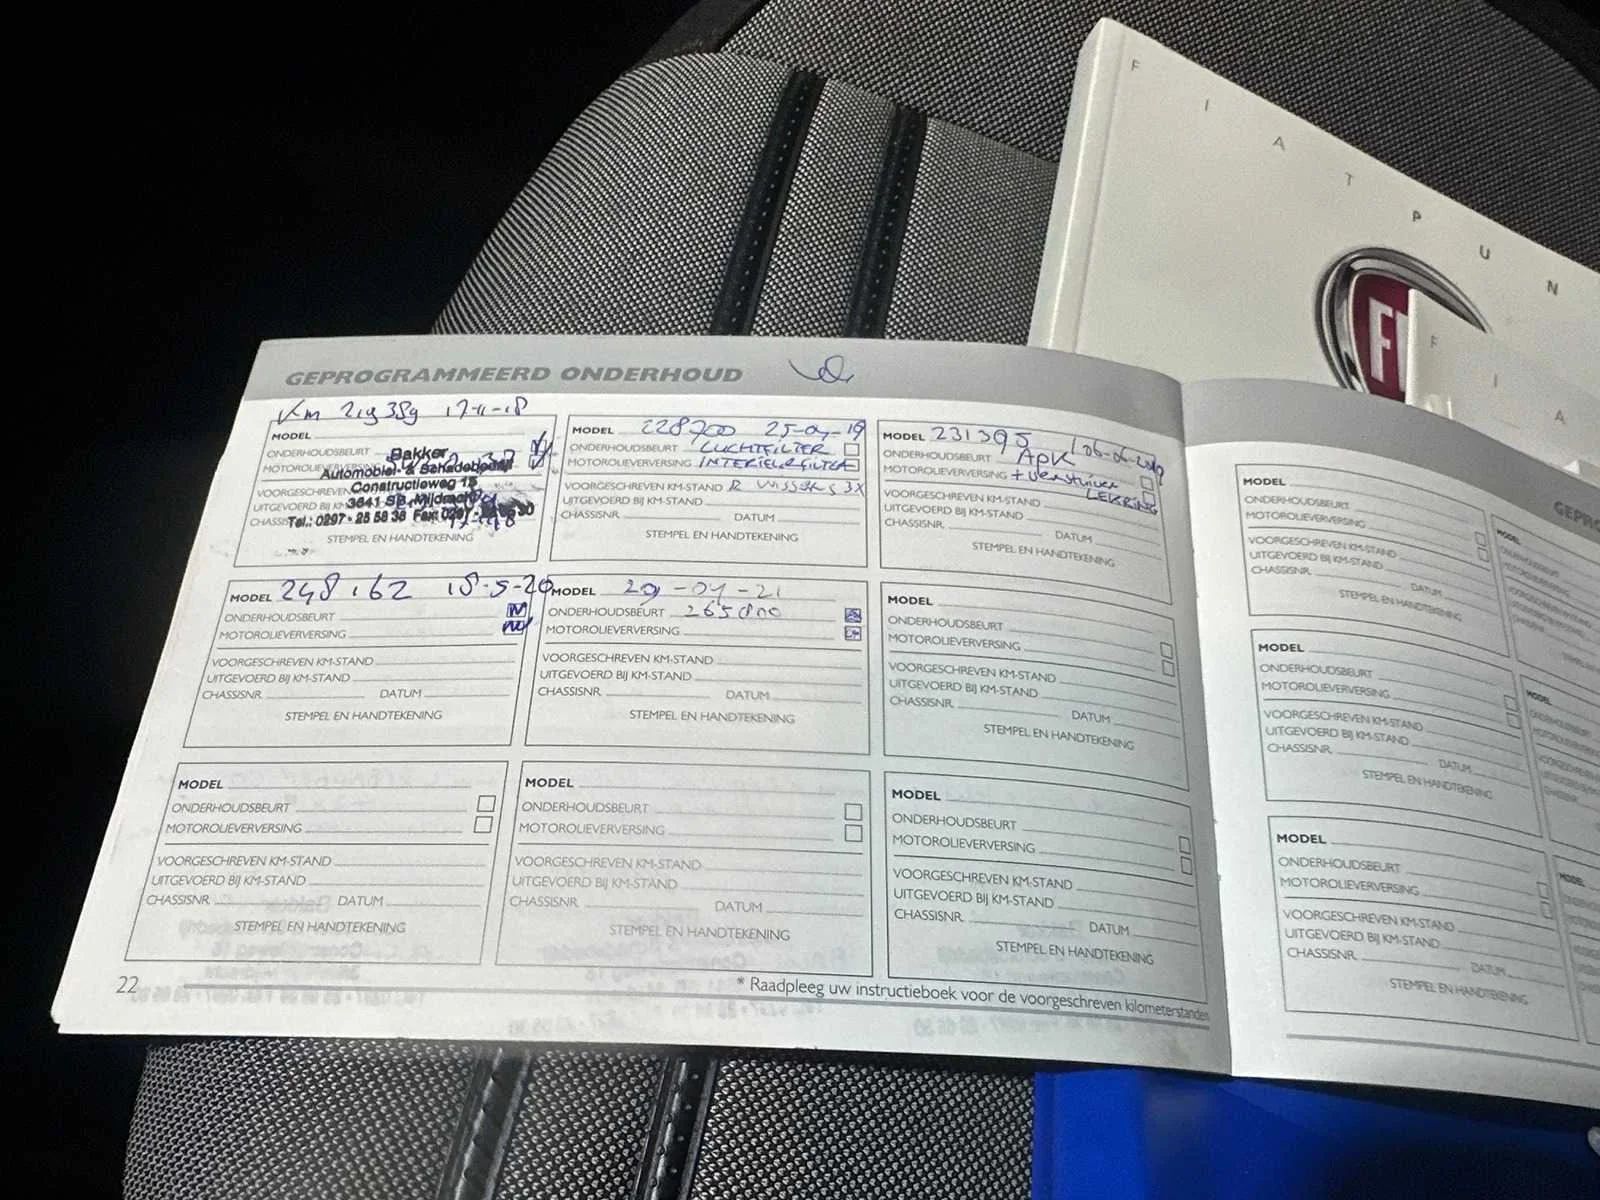 F I A T P U N
F I A
GEPROGRAMMEERD ONDERHOUD
Km 219389 17-11-18
MODEL
ONDERHOUDSBEURT
MOTOROLIEVERVERSING
VOORGESCHREVEN
UITGEVOERD BIJ KM
CHASSIS
Bakker
Automobiel- & Schadebedrijf
Constructieweg 15
3641 SB Mijdrecht
Tel.: 0297 - 25 58 38 Fax: 0297
STEMPEL EN HANDTEKENING
MODEL 228700 25-04-19
ONDERHOUDSBEURT LUCHTFILTER
MOTOROLIEVERVERSING INTERIEURFILTER
VOORGESCHREVEN KM-STAND R WISSERS 3X
UITGEVOERD BIJ KM-STAND
CHASSISNR. DATUM
STEMPEL EN HANDTEKENING
MODEL 231395
ONDERHOUDSBEURT APK
MOTOROLIEVERVERSING + verstuiver
VOORGESCHREVEN KM-STAND LEKRING
UITGEVOERD BIJ KM-STAND
CHASSISNR. DATUM
STEMPEL EN HANDTEKENING
MODEL 248162 18-5-20
ONDERHOUDSBEURT
MOTOROLIEVERVERSING
VOORGESCHREVEN KM-STAND
UITGEVOERD BIJ KM-STAND
CHASSISNR. DATUM
STEMPEL EN HANDTEKENING
MODEL 29-04-21
ONDERHOUDSBEURT 265000
MOTOROLIEVERVERSING
VOORGESCHREVEN KM-STAND
UITGEVOERD BIJ KM-STAND
CHASSISNR. DATUM
STEMPEL EN HANDTEKENING
MODEL
ONDERHOUDSBEURT
MOTOROLIEVERVERSING
VOORGESCHREVEN KM-STAND
UITGEVOERD BIJ KM-STAND
CHASSISNR. DATUM
STEMPEL EN HANDTEKENING
MODEL
ONDERHOUDSBEURT
MOTOROLIEVERVERSING
VOORGESCHREVEN KM-STAND
UITGEVOERD BIJ KM-STAND
CHASSISNR. DATUM
STEMPEL EN HANDTEKENING
MODEL
ONDERHOUDSBEURT
MOTOROLIEVERVERSING
VOORGESCHREVEN KM-STAND
UITGEVOERD BIJ KM-STAND
CHASSISNR. DATUM
STEMPEL EN HANDTEKENING
MODEL
ONDERHOUDSBEURT
MOTOROLIEVERVERSING
VOORGESCHREVEN KM-STAND
UITGEVOERD BIJ KM-STAND
CHASSISNR. DATUM
STEMPEL EN HANDTEKENING
22
* Raadpleeg uw instructieboek voor de voorgeschreven kilometerstanden
GEPRO
MODEL
ONDERHOUDSBEURT
MOTOROLIEVERVERSING
VOORGESCHREVEN KM-STAND
UITGEVOERD BIJ KM-STAND
CHASSISNR. DATUM
STEMPEL EN HANDTEKENING
MODEL
MODEL
ONDERHOUDSBEURT
MOTOROLIEVERVERSING
VOORGESCHREVEN KM-STAND
UITGEVOERD BIJ KM-STAND
CHASSISNR. DATUM
STEMPEL EN HANDTEKENING
MODEL
MODEL
ONDERHOUDSBEURT
MOTOROLIEVERVERSING
VOORGESCHREVEN KM-STAND
UITGEVOERD BIJ KM-STAND
CHASSISNR. DATUM
STEMPEL EN HANDTEKENING
MODEL